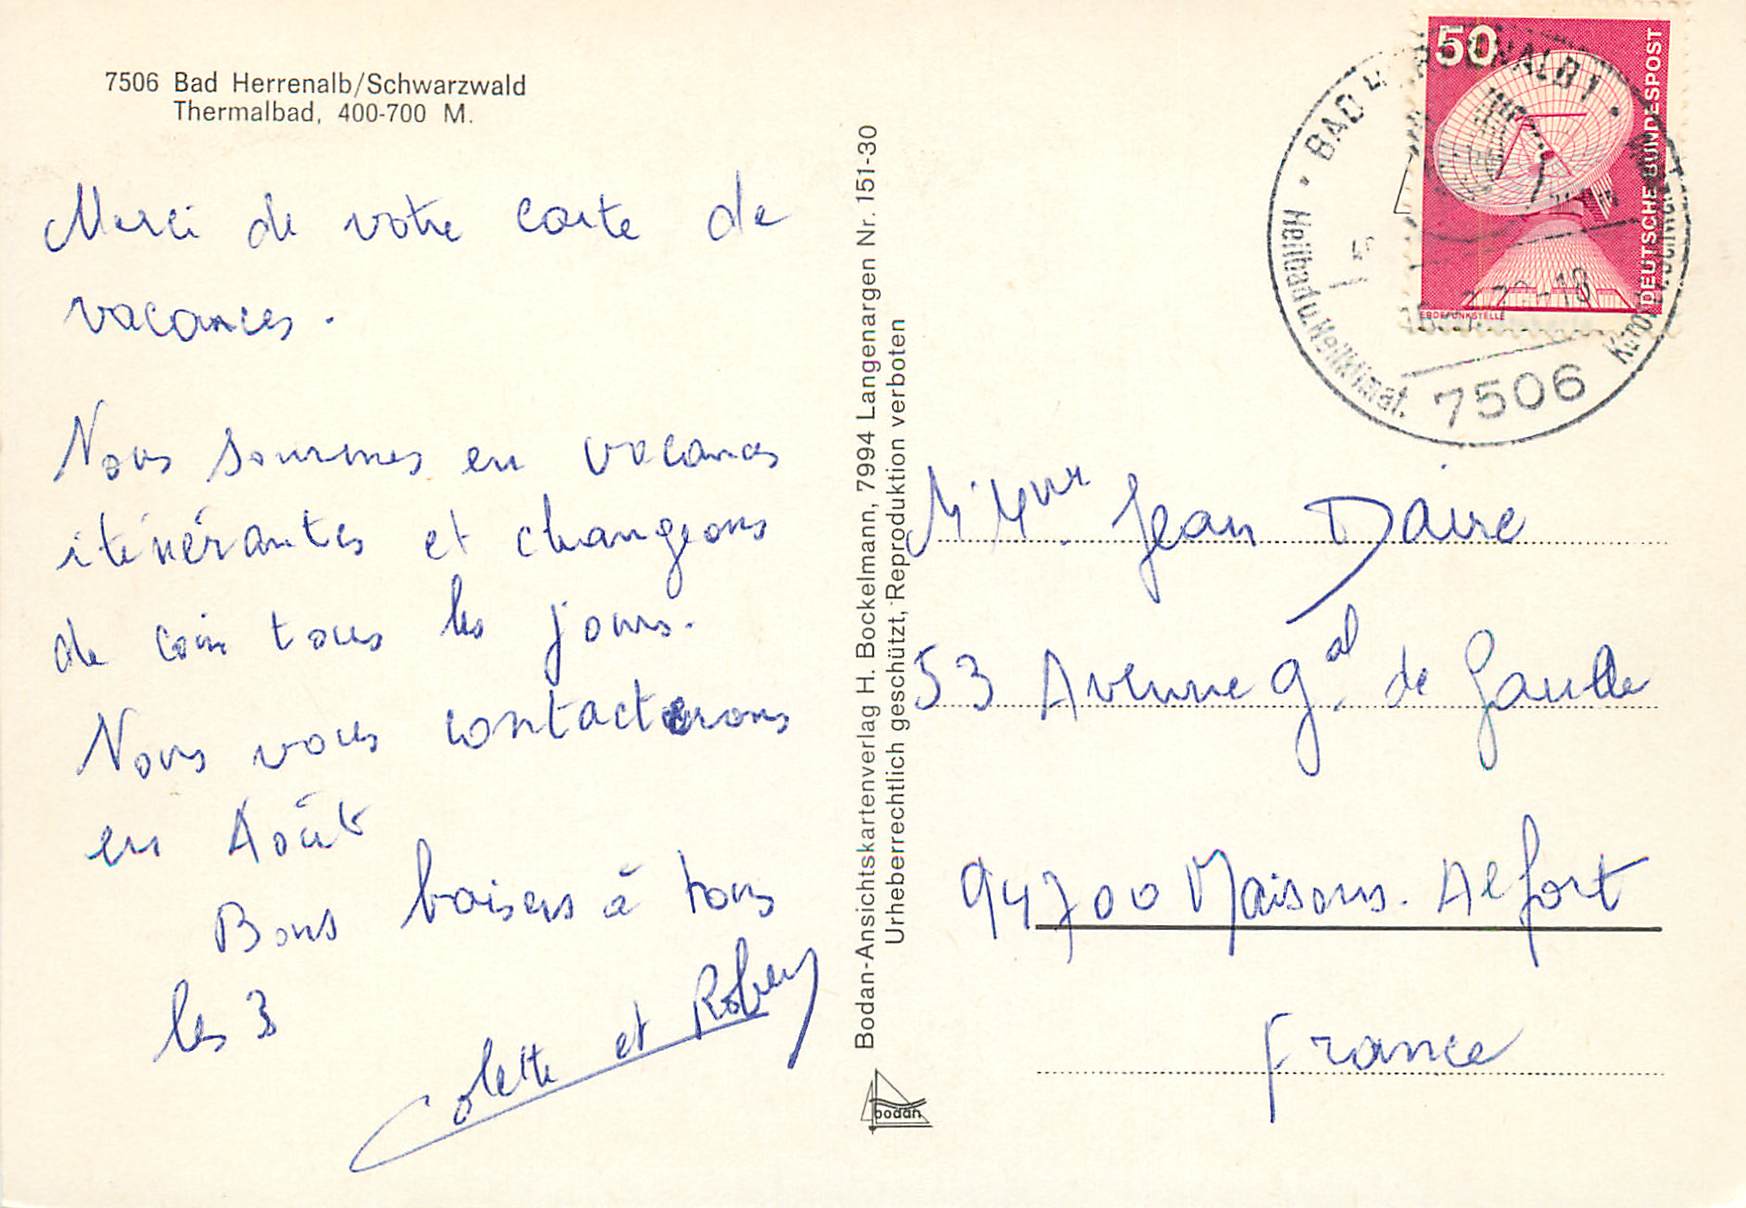 7506 Bad Herrenalb/Schwarzwald
Thermalbad, 400-700 M.
Merci de votre carte de
vacances.
Nous sommes en vacances
itinérantes et changeons
de coin tous les jours.
Nous vous contacterons
en Août
Bons baisers à tous
les 3
Colette et Robert
Bodan-Ansichtskartenverlag H. Bockelmann, 7994 Langenargen Nr. 151-30
Urheberrechtlich geschützt, Reproduktion verboten
bodan
50
DEUTSCHE BUNDESPOST
ERDEFUNKSTELLE
BAD HERRENALB 1
Heilbad u. Heilklimat.
7506
M. Mme Jean Daire
53 Avenue Gal de Gaulle
94700 Maisons-Alfort
France